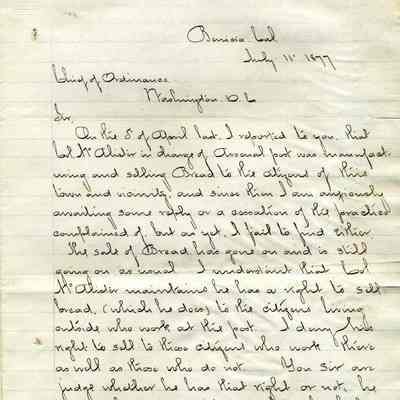 Benicia Cal
July 11" 1877
Chief of Ordinance
Washington D. C
Sir,
On the 5' of April last, I reported to you, that
Col McAlister in charge of Arsenal post was manufact
uring and selling Bread to the citizens of this
town and vicinity and since then I am anxiously
awaiting some reply or a cessation of the practice
complained of, but as yet, I fail to find either.
The sale of Bread, has gone on and is still
going on as usual. I understand that Col
McAlister maintains he has a right to sell
bread, (which he does) to the citizens living
outside who work at the post. I deny his
right to sell to those citizens who work there
as well as those who do not. You sir are
judge whether he has that right or not, he